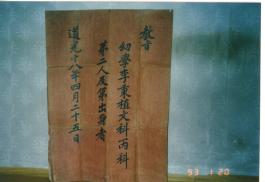 教旨
幼學李秉植文科丙科
第二人及第出身者
道光十八年四月二十五日
93 1 20